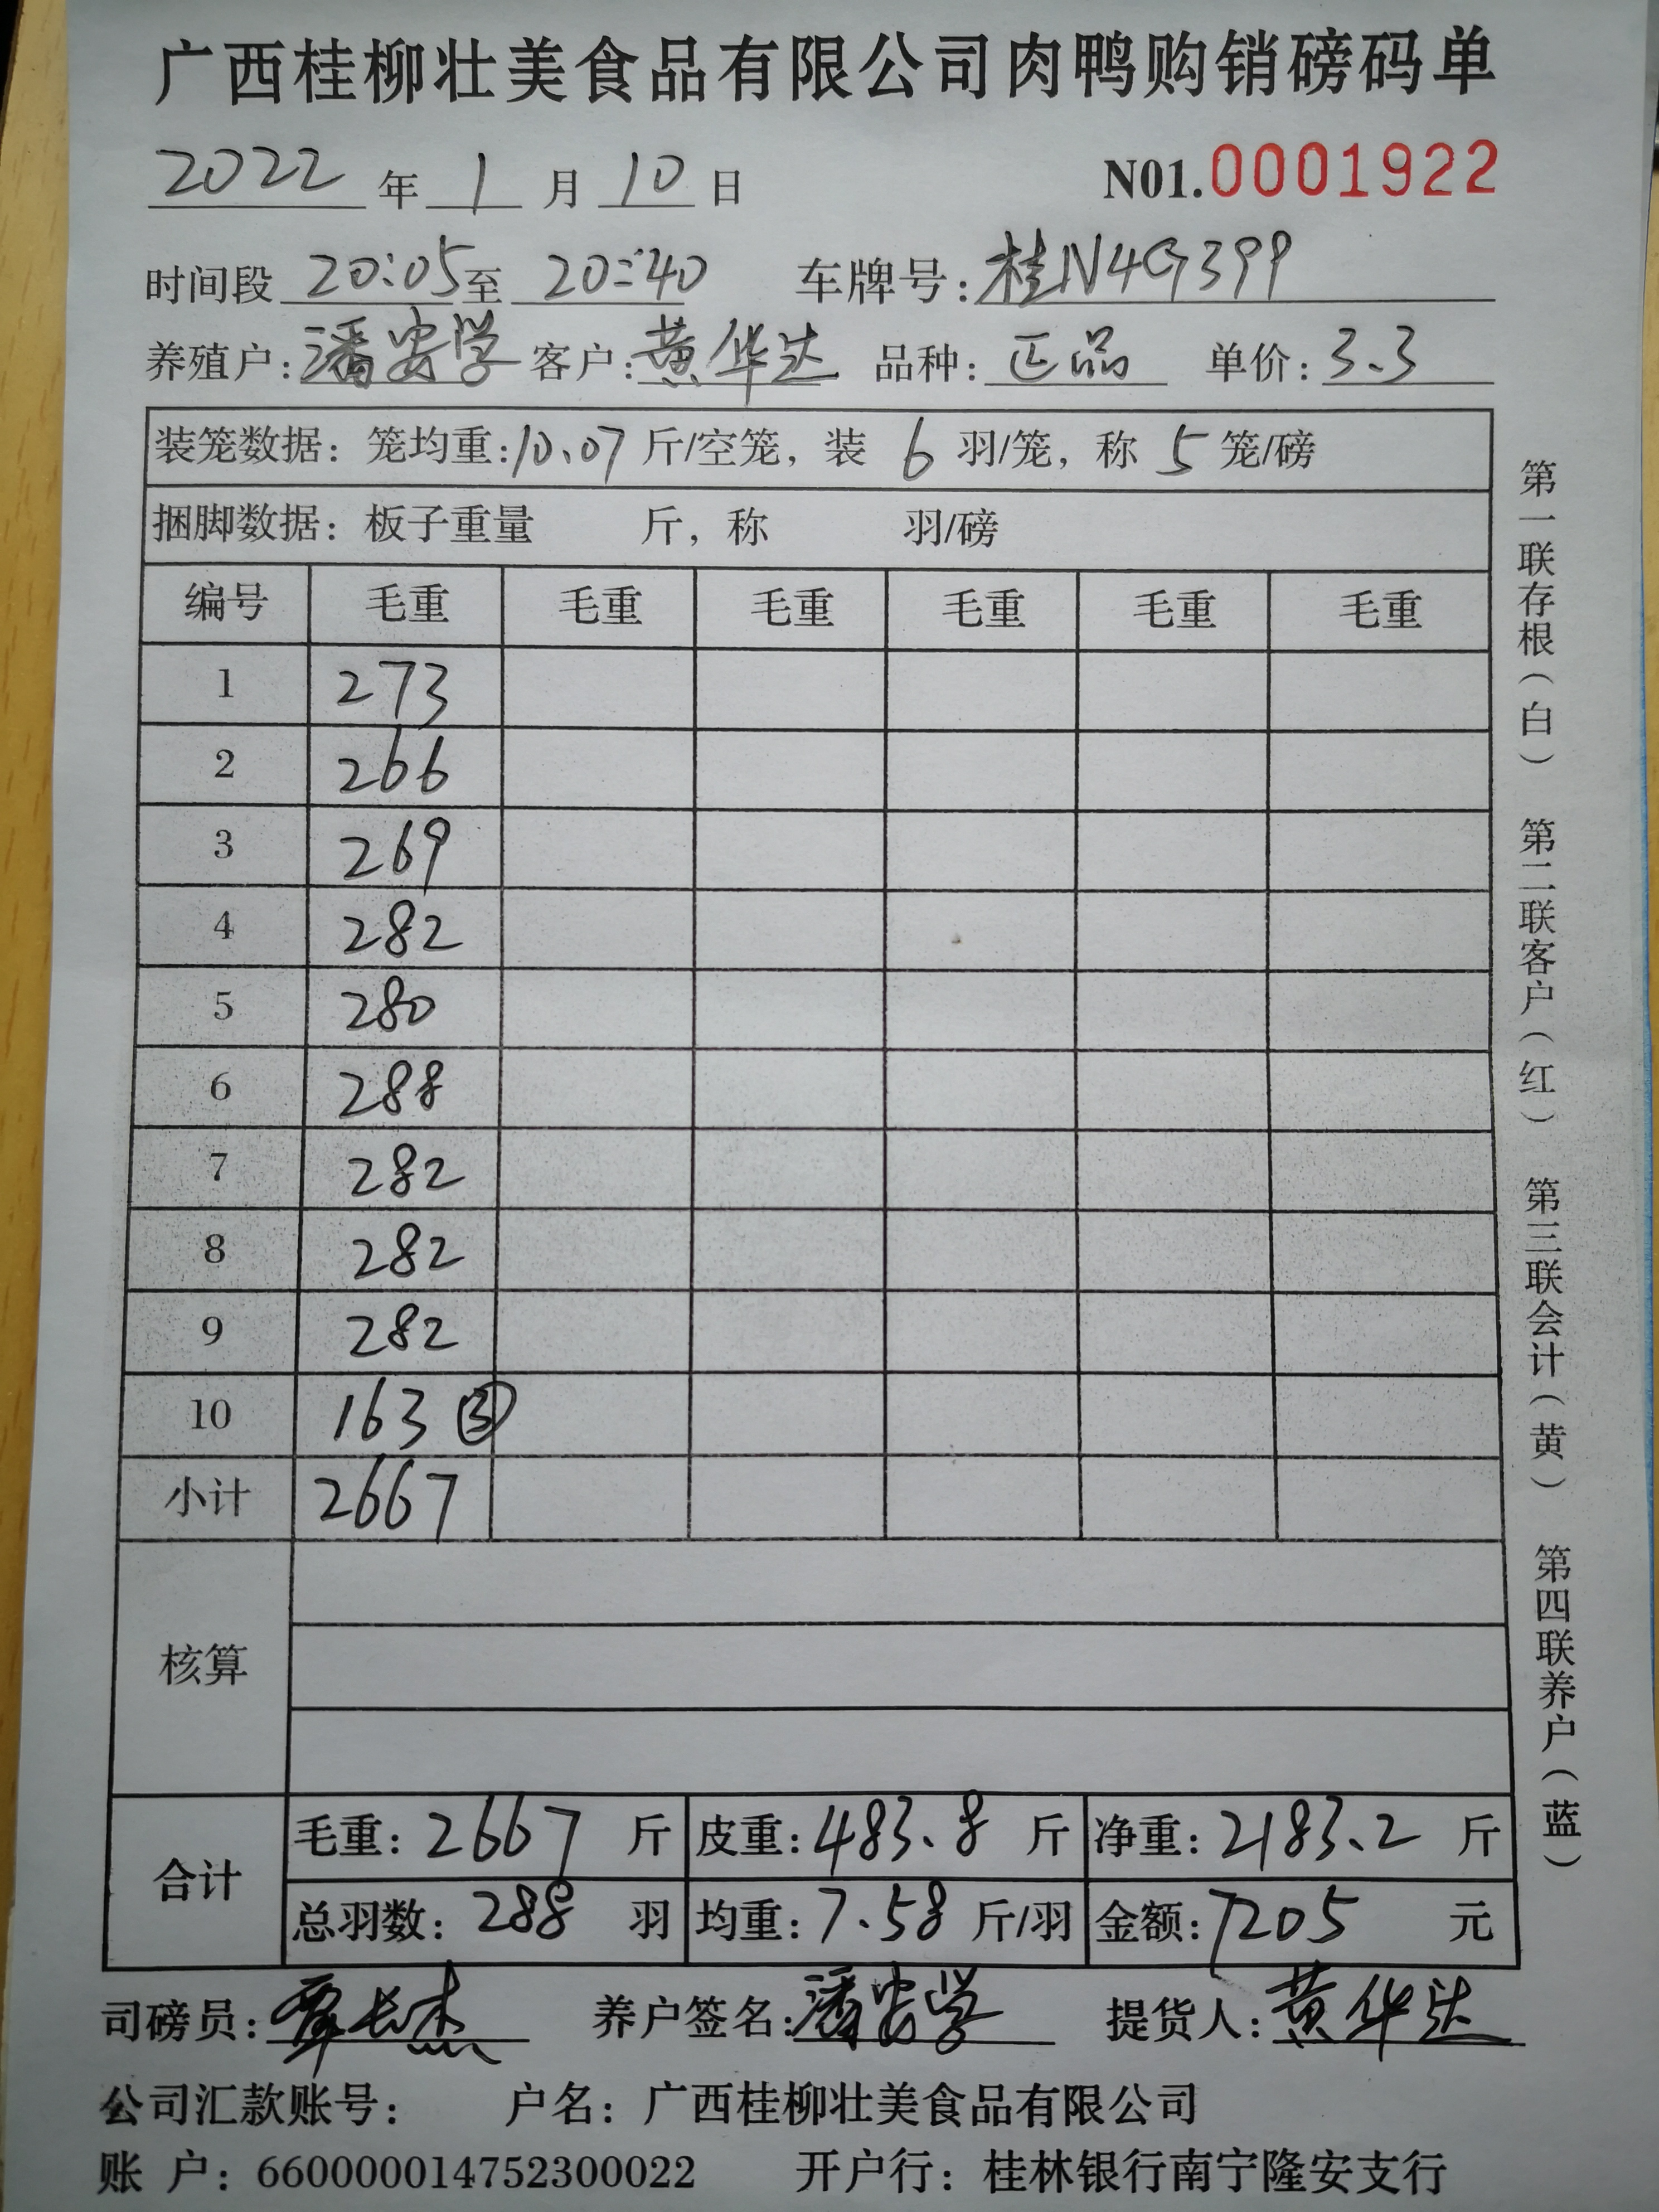 广西桂柳壮美食品有限公司肉鸭购销磅码单
2022 年 1 月 10 日 N01.0001922
时间段 20:05 至 20:40 车牌号:桂N4G399
养殖户:潘安学 客户:黄华达 品种:正品 单价:3.3
装笼数据:笼均重:10.07 斤/空笼,装 6 羽/笼,称 5 笼/磅
捆脚数据:板子重量 斤,称 羽/磅
编号 毛重 毛重 毛重 毛重 毛重 毛重
1 273
2 266
3 269
4 282
5 280
6 288
7 282
8 282
9 282
10 163 ③
小计 2667
核算
合计
毛重:2667 斤 皮重:483.8 斤 净重:2183.2 斤
总羽数:288 羽 均重:7.58 斤/羽 金额:7205 元
司磅员:覃长杰 养户签名:潘安学 提货人:黄华达
公司汇款账号: 户名:广西桂柳壮美食品有限公司
账 户:660000014752300022 开户行:桂林银行南宁隆安支行
第一联存根(白) 第二联客户(红) 第三联会计(黄) 第四联养户(蓝)